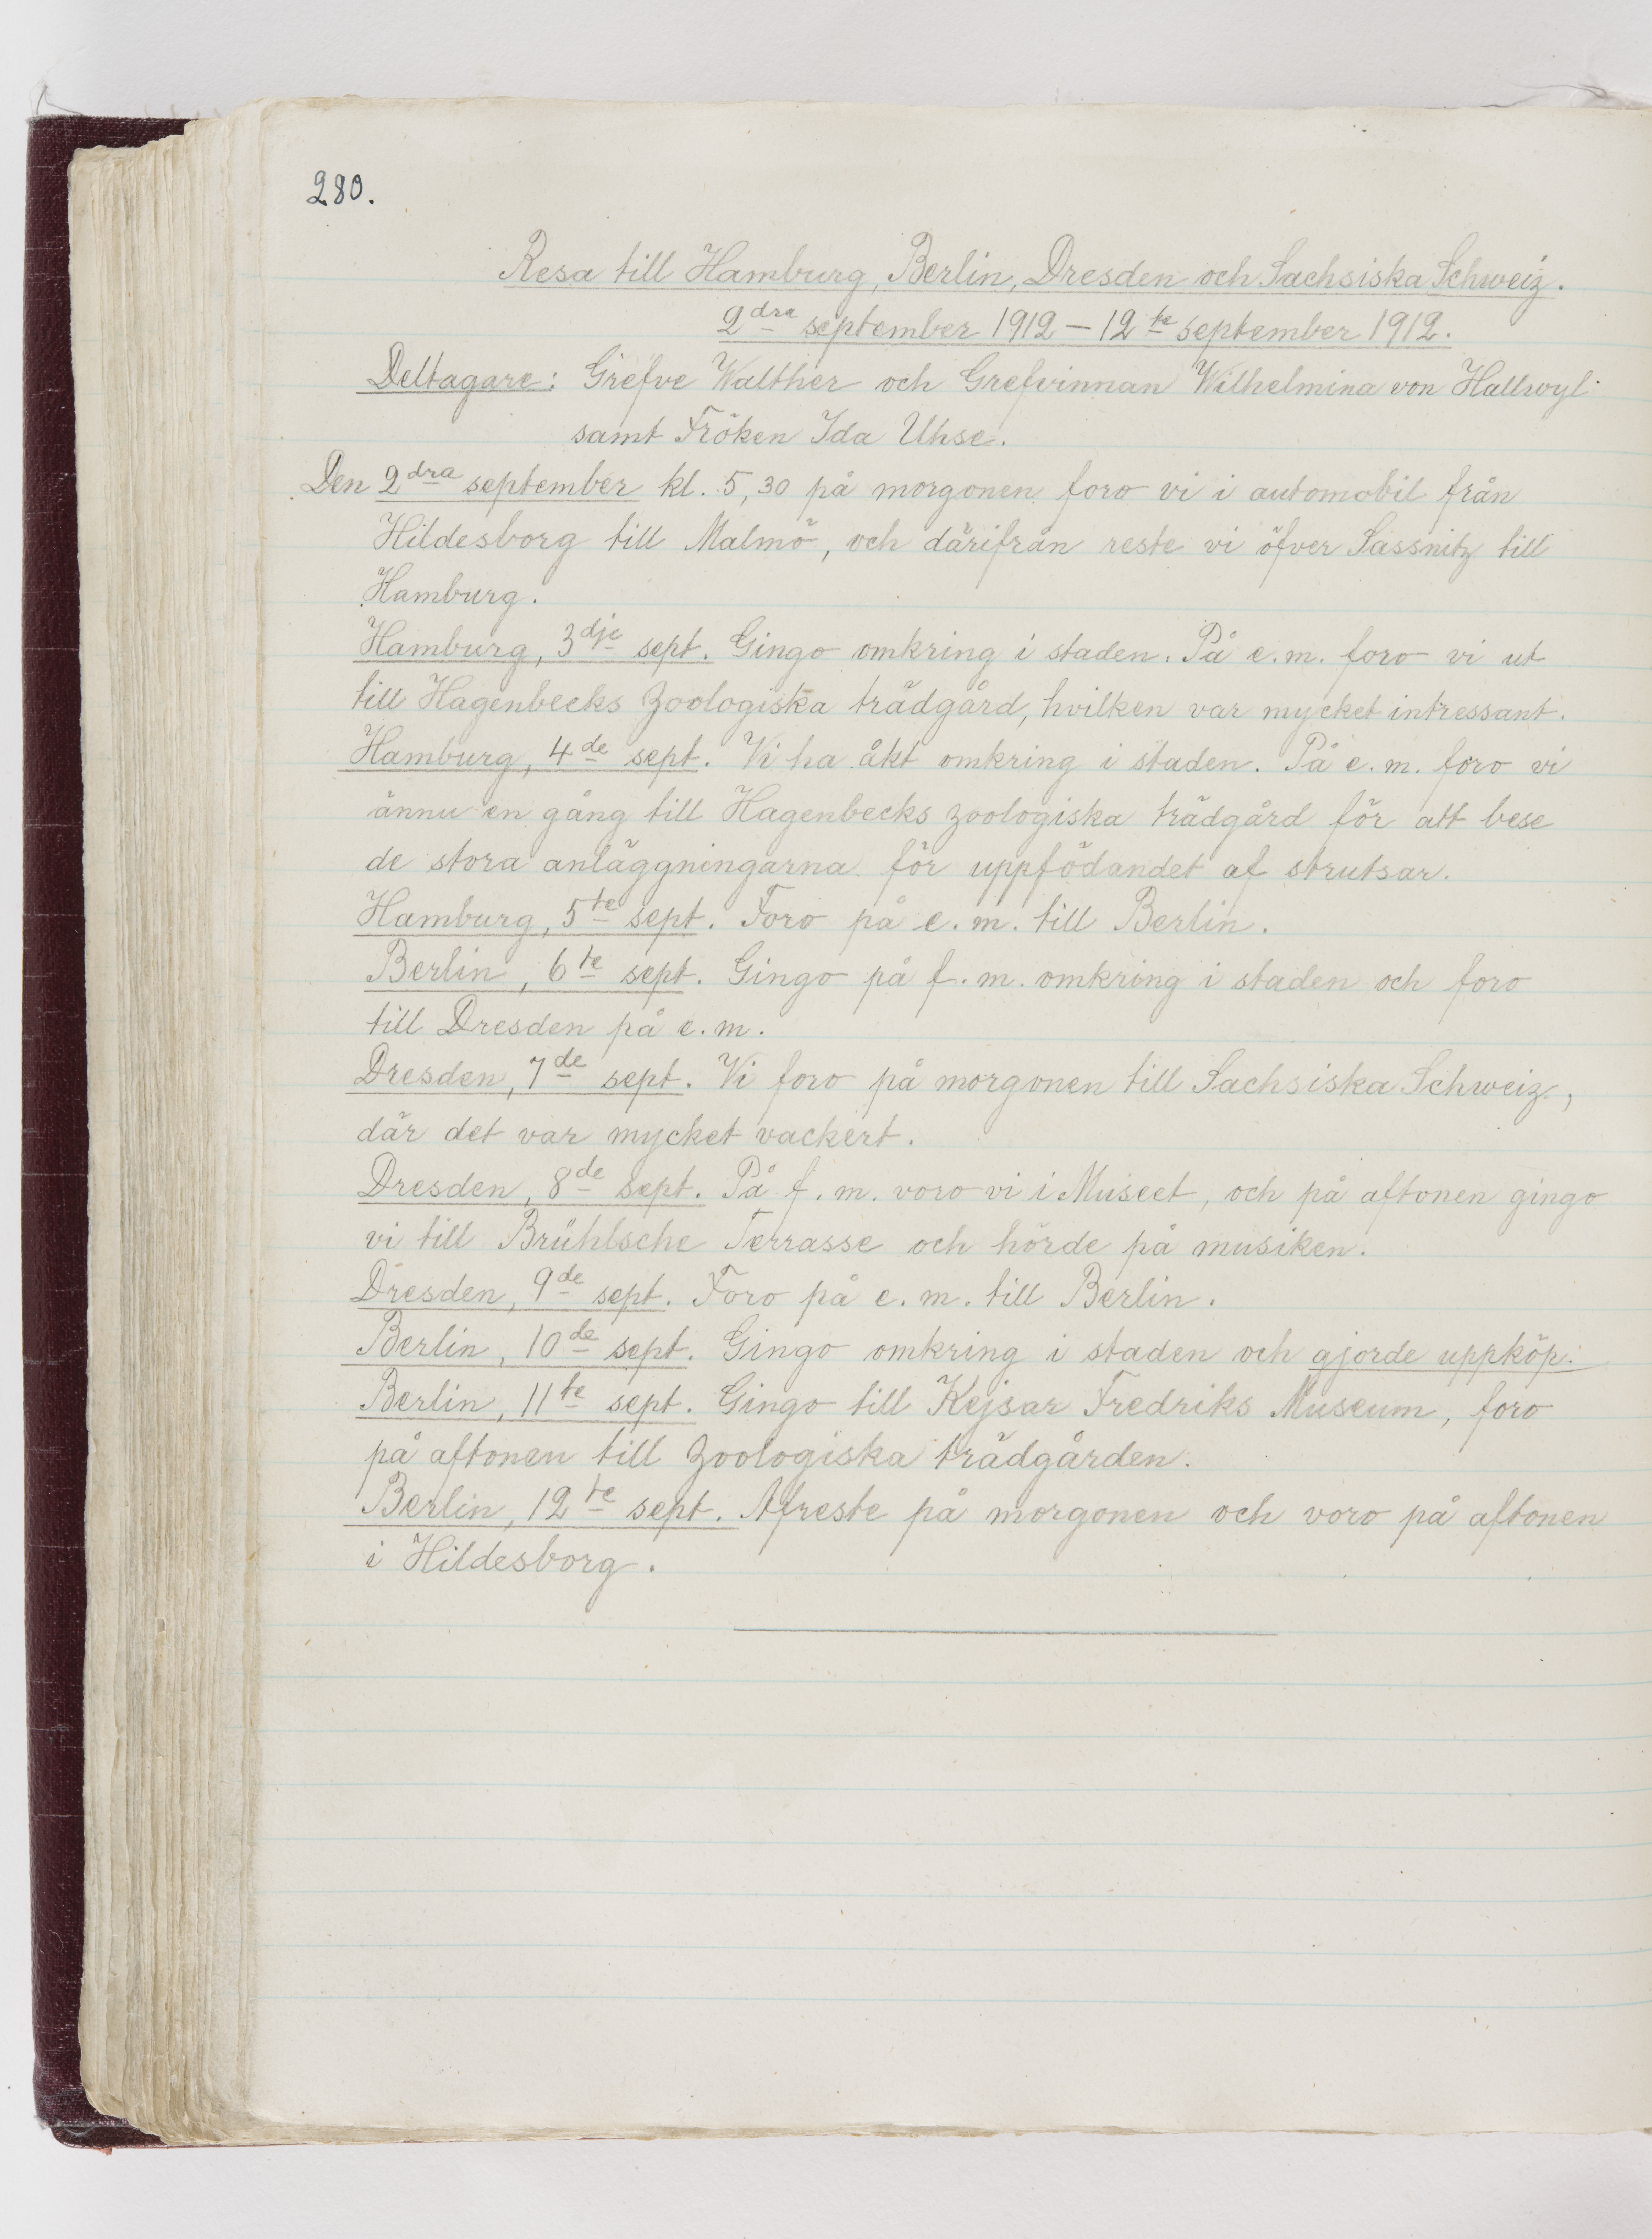 280.
Resa till Hamburg, Berlin, Dresden och Sachsiska Schweiz.
2dra september 1912 — 12te september 1912.
Deltagare: Grefve Walther och Grefvinnan Wilhelmina von Hallwyl
samt Fröken Ida Uhse.
Den 2dra september kl. 5,30 på morgonen foro vi i automobil från
Hildesborg till Malmö, och därifrån reste vi öfver Sassnitz till
Hamburg.
Hamburg, 3dje sept. Gingo omkring i staden. På e.m. foro vi ut
till Hagenbecks Zoologiska trädgård, hvilken var mycket intressant.
Hamburg, 4de sept. Vi ha åkt omkring i staden. På e.m. foro vi
ännu en gång till Hagenbecks zoologiska trädgård för att bese
de stora anläggningarna för uppfödandet af strutsar.
Hamburg, 5te sept. Foro på e.m. till Berlin.
Berlin, 6te sept. Gingo på f.m. omkring i staden och foro
till Dresden på e.m.
Dresden, 7de sept. Vi foro på morgonen till Sachsiska Schweiz,
där det var mycket vackert.
Dresden, 8de sept. På f.m. voro vi i Museet, och på aftonen gingo
vi till Brühlsche Terrasse och hörde på musiken.
Dresden, 9de sept. Foro på e.m. till Berlin.
Berlin, 10de sept. Gingo omkring i staden och gjorde uppköp.
Berlin, 11te sept. Gingo till Kejsar Fredriks Museum, foro
på aftonen till Zoologiska trädgården.
Berlin, 12te sept. Afreste på morgonen och voro på aftonen
i Hildesborg.